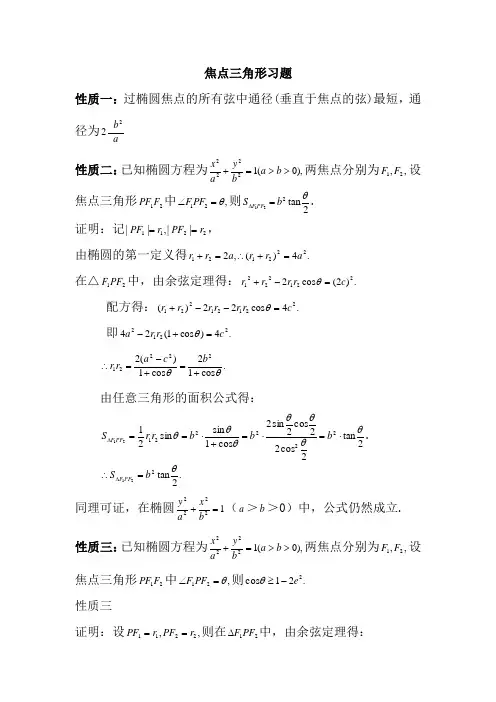 焦点三角形习题
性质一：过椭圆焦点的所有弦中通径(垂直于焦点的弦)最短，通
径为 $2\frac{b^2}{a}$
性质二：已知椭圆方程为 $\frac{x^2}{a^2}+\frac{y^2}{b^2}=1(a>b>0),$ 两焦点分别为 $F_1,F_2,$ 设
焦点三角形 $PF_1F_2$ 中 $\angle F_1PF_2=\theta,$ 则 $S_{\Delta F_1PF_2}=b^2\tan\frac{\theta}{2}$．
证明：记 $|PF_1|=r_1,|PF_2|=r_2$，
由椭圆的第一定义得 $r_1+r_2=2a,\therefore(r_1+r_2)^2=4a^2.$
在△ $F_1PF_2$ 中，由余弦定理得： $r_1^2+r_2^2-2r_1r_2\cos\theta=(2c)^2.$
配方得： $(r_1+r_2)^2-2r_1r_2-2r_1r_2\cos\theta=4c^2.$
即 $4a^2-2r_1r_2(1+\cos\theta)=4c^2.$
$\therefore r_1r_2=\frac{2(a^2-c^2)}{1+\cos\theta}=\frac{2b^2}{1+\cos\theta}.$
由任意三角形的面积公式得：
$S_{\Delta F_1PF_2}=\frac{1}{2}r_1r_2\sin\theta=b^2\cdot\frac{\sin\theta}{1+\cos\theta}=b^2\cdot\frac{2\sin\frac{\theta}{2}\cos\frac{\theta}{2}}{2\cos^2\frac{\theta}{2}}=b^2\cdot\tan\frac{\theta}{2}$．
$\therefore S_{\Delta F_1PF_2}=b^2\tan\frac{\theta}{2}.$
同理可证，在椭圆 $\frac{y^2}{a^2}+\frac{x^2}{b^2}=1$（$a$＞$b$＞0）中，公式仍然成立.
性质三：已知椭圆方程为 $\frac{x^2}{a^2}+\frac{y^2}{b^2}=1(a>b>0),$ 两焦点分别为 $F_1,F_2,$ 设
焦点三角形 $PF_1F_2$ 中 $\angle F_1PF_2=\theta,$ 则 $\cos\theta\geq1-2e^2.$
性质三
证明：设 $PF_1=r_1,PF_2=r_2,$ 则在 $\Delta F_1PF_2$ 中，由余弦定理得：